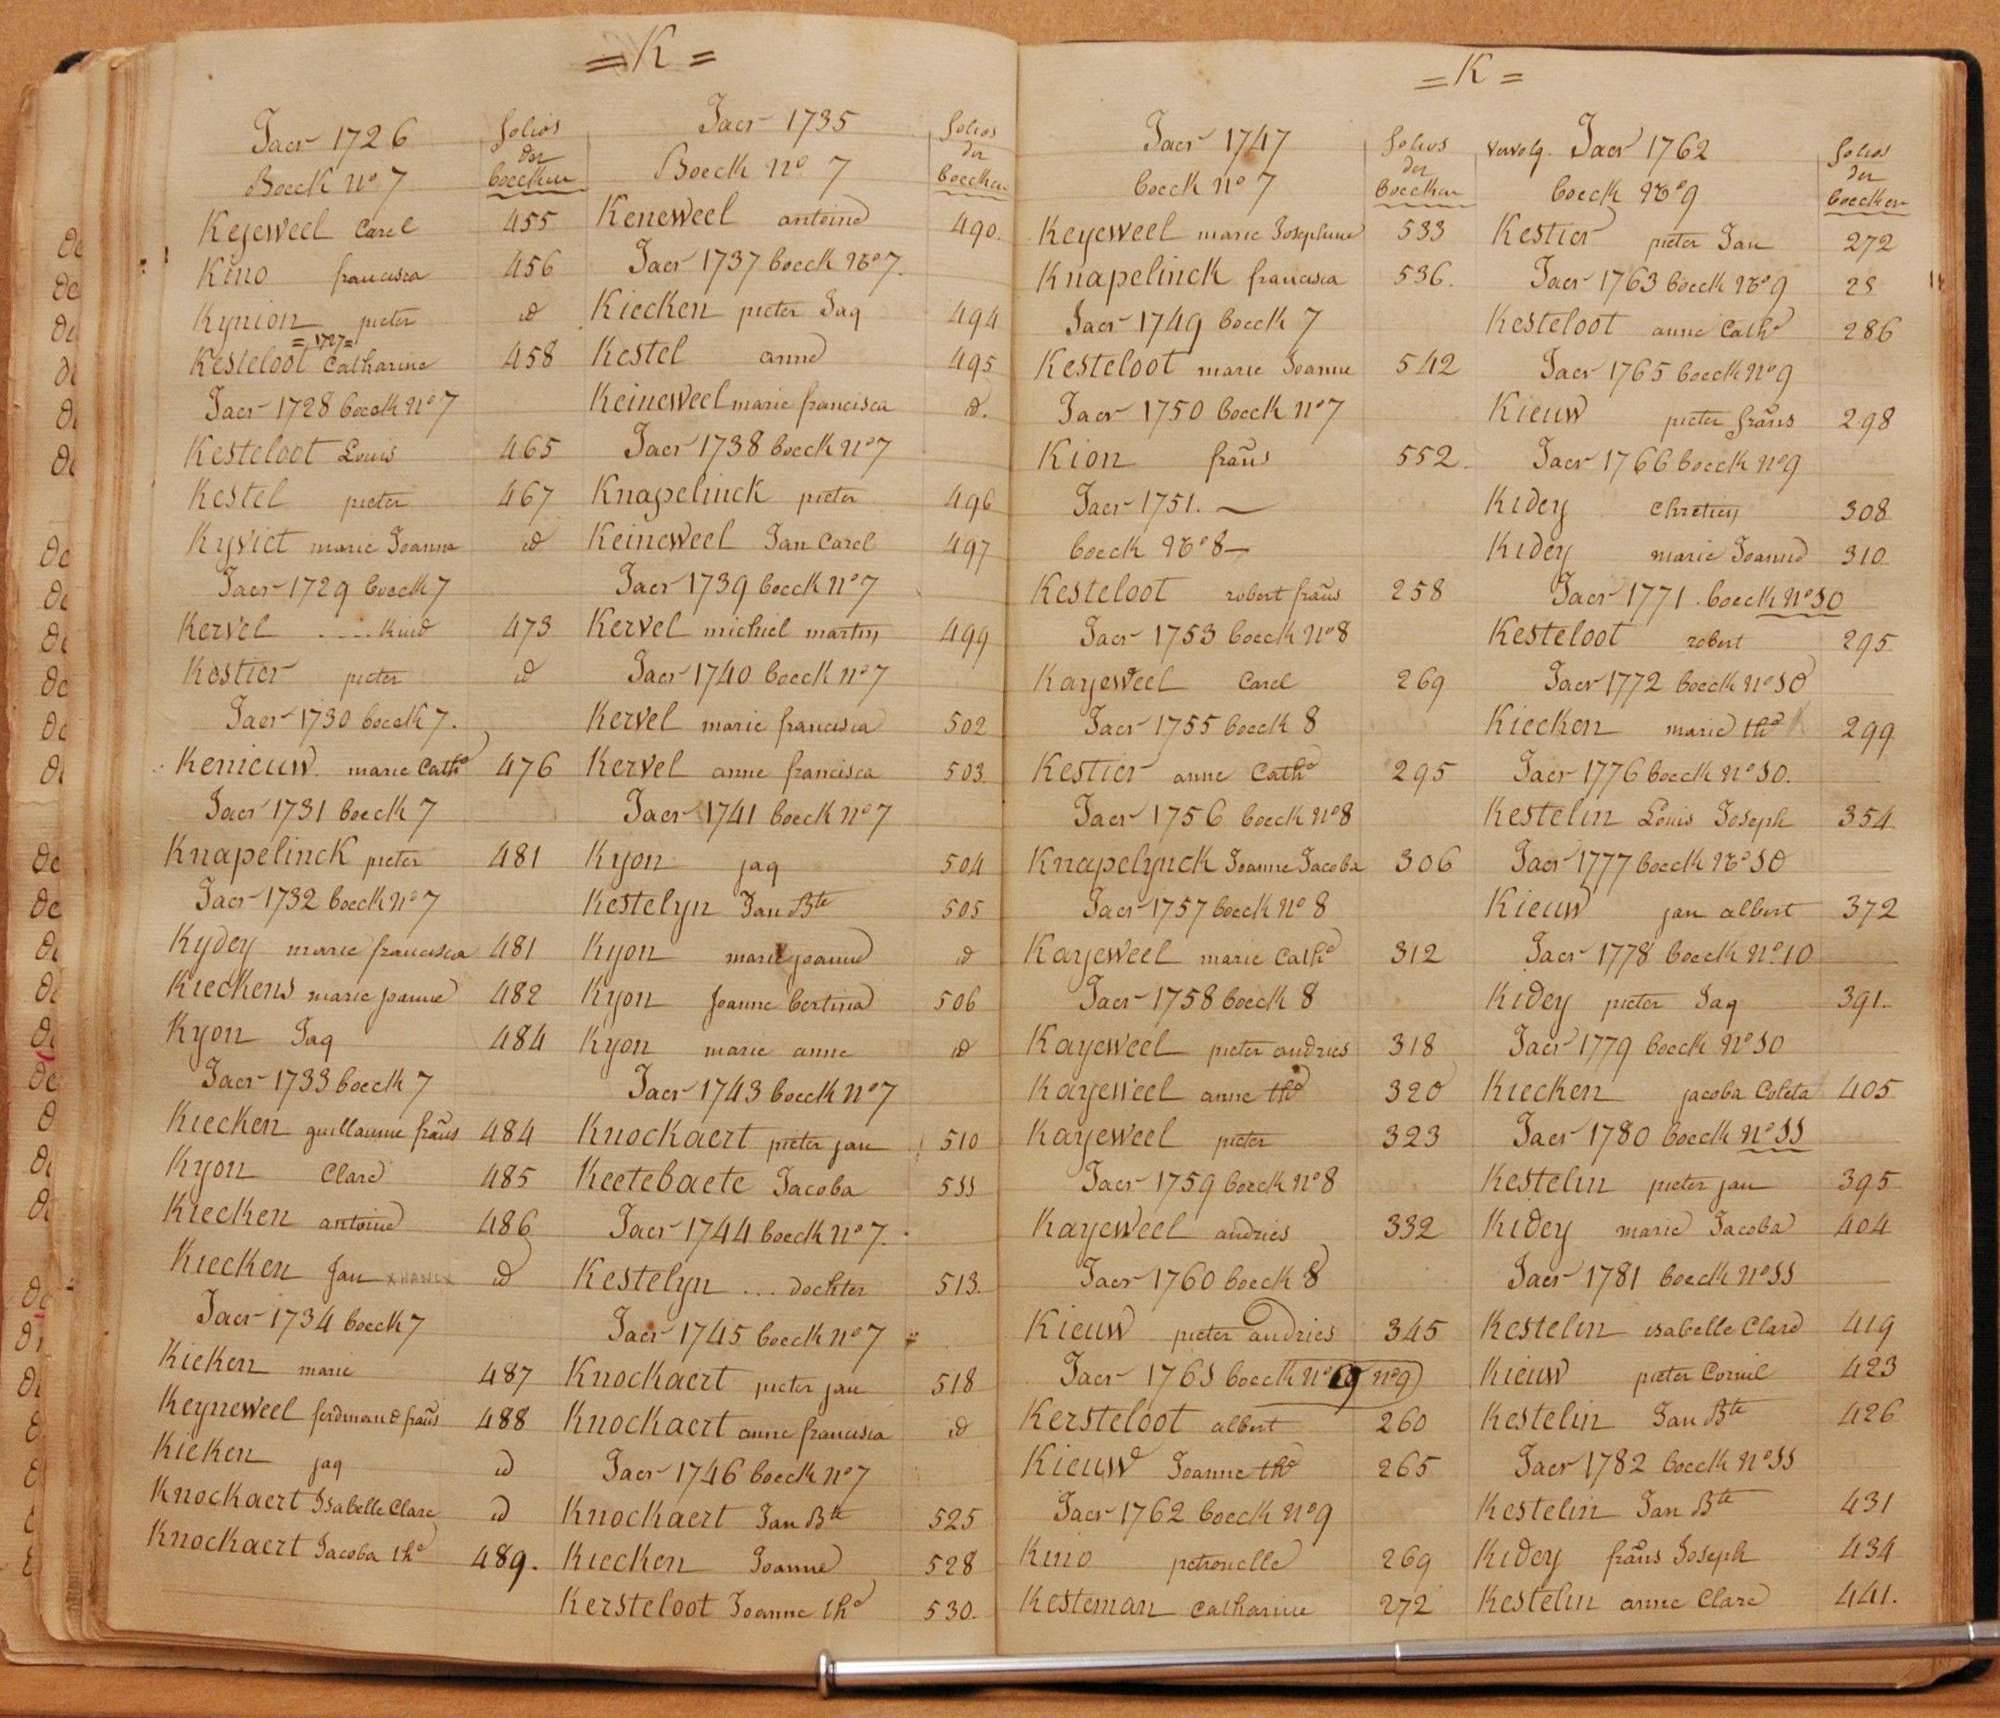 = K =
Jaer 1726
Boeck No 7
folios
der
boecken
Keyeweel Carel 455
Kino francisca 456
Kynion pieter id
= 1727 =
Kesteloot Catharine 458
Jaer 1728 boeck No 7
Kesteloot Louis 465
Kestel pieter 467
Kyvict marie Joanna id
Jaer 1729 boeck 7
Kervel .... Kind 473
Kestier pieter id
Jaer 1730 boeck 7.
Kenieuw marie Cathe 476
Jaer 1731 boeck 7
Knapelinck pieter 481
Jaer 1732 boeck No 7
Kydey marie francisca 481
Kieckens marie joanne 482
Kyon Jaq 484
Jaer 1733 boeck 7
Kiecken guillaume frans 484
Kyon Clare 485
Kiecken antoine 486
Kiecken Jan id
Jaer 1734 boeck 7
Kieken marie 487
Keyneweel ferdinand frans 488
Kieken jaq id
Knockaert Isabelle Clare id
Knockaert Jacoba the 489.
Jaer 1735
Boeck No 7
folios
der
boecken
Keneweel antoine 490.
Jaer 1737 boeck No 7.
Kiecken pieter Jaq 494
Kestel anne 495
Keineweel marie francisca id.
Jaer 1738 boeck No 7
Knapelinck pieter 496
Keineweel Jan Carel 497
Jaer 1739 boeck No 7
Kervel michiel martin 499
Jaer 1740 boeck No 7
Kervel marie francisca 502
Kervel anne francisca 503
Jaer 1741 boeck No 7
Kyon jaq 504
Kestelyn Jan Bte 505
Kyon marie joanne id
Kyon Joanne bertina 506
Kyon marie anne id
Jaer 1743 boeck No 7
Knockaert pieter jan 510
Keetebaete Jacoba 511
Jaer 1744 boeck No 7.
Kestelyn ... dochter 513.
Jaer 1745 boeck No 7
Knockaert pieter jan 518
Knockaert anne francisca id
Jaer 1746 boeck No 7
Knockaert Jan Bte 525
Kiecken Joanne 528
Kersteloot Joanne the 530.
= K =
Jaer 1747
boeck No 7
folios
der
boecken
Keyeweel marie Josephine 533
Knapelinck francisca 536.
Jaer 1749 boeck 7
Kesteloot marie Joanne 542
Jaer 1750 boeck No 7
Kion frans 552.
Jaer 1751. —
boeck No 8 —
Kesteloot robert frans 258
Jaer 1753 boeck No 8
Kayeweel Carel 269
Jaer 1755 boeck 8
Kestier anne Cathe 295
Jaer 1756 boeck No 8
Knapelynck Joanne Jacoba 306
Jaer 1757 boeck No 8
Kayeweel marie Cathe 312
Jaer 1758 boeck 8
Kayeweel pieter andries 318
Kayeweel anne the 320
Kayeweel pieter 323
Jaer 1759 boeck No 8
Kayeweel andries 332
Jaer 1760 boeck 8
Kieuw pieter andries 345
Jaer 1761 boeck No 9 No 9
Kersteloot albert 260
Kieuw Joanne the 265
Jaer 1762 boeck No 9
Kino petronelle 269
Kesteman Catharine 272
vervolg. Jaer 1762
boeck No 9
folios
der
boecken
Kestier pieter Jan 272
Jaer 1763 boeck No 9 28
Kesteloot anne Cathe 286
Jaer 1765 boeck No 9
Kieuw pieter frans 298
Jaer 1766 boeck No 9
Kidey Chretien 308
Kidey marie Joanne 310
Jaer 1771 boeck No 10
Kesteloot robert 295
Jaer 1772 boeck No 10
Kiecken marie the 299
Jaer 1776 boeck No 10.
Kestelin Louis Joseph 354
Jaer 1777 boeck No 10
Kieuw jan albert 372
Jaer 1778 boeck No 10
Kidey pieter Jaq 391.
Jaer 1779 boeck No 10
Kiecken jacoba Coleta 405
Jaer 1780 boeck No 11
Kestelin pieter jan 395
Kidey marie Jacoba 404
Jaer 1781 boeck No 11
Kestelin isabelle Clare 419
Kieuw pieter Cornil 423
Kestelin Jan Bte 426
Jaer 1782 boeck No 11
Kestelin Jan Bte 431
Kidey frans Joseph 434
Kestelin anne Clare 441.